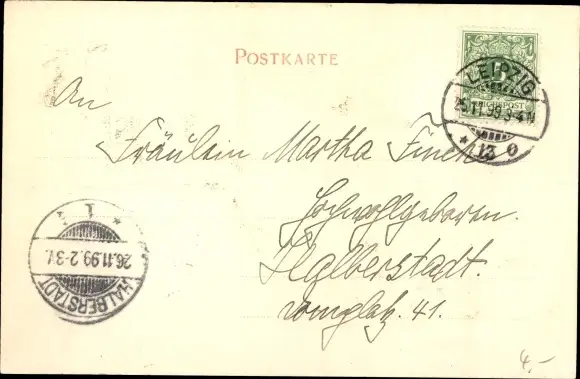 POSTKARTE
An
Fräulein Martha Finck
Hochwohlgeboren.
Halberstadt.
Domplatz. 41.
REICHSPOST
LEIPZIG
25.11.99.3-4N
* 13 O
* 1 *
26.11.99.2-3V.
HALBERSTADT
4,-